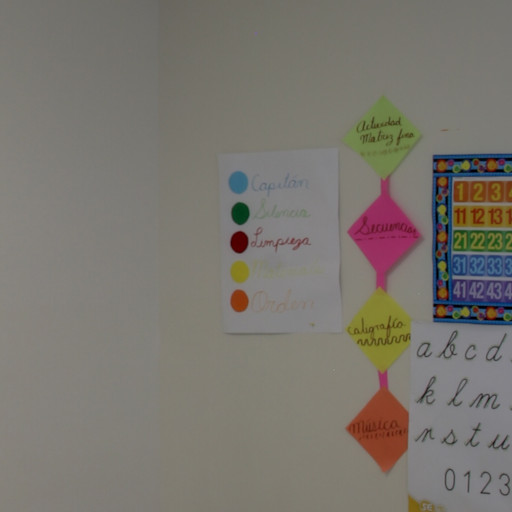 Capitán
Silencio
Limpieza
Orden
Actividad
Motriz fina
Secuencias
Caligrafía
Música
1 2 3 4
11 12 13 1
21 22 23 2
31 32 33 3
41 42 43 4
a b c d
k l m
r s t u
0 1 2 3